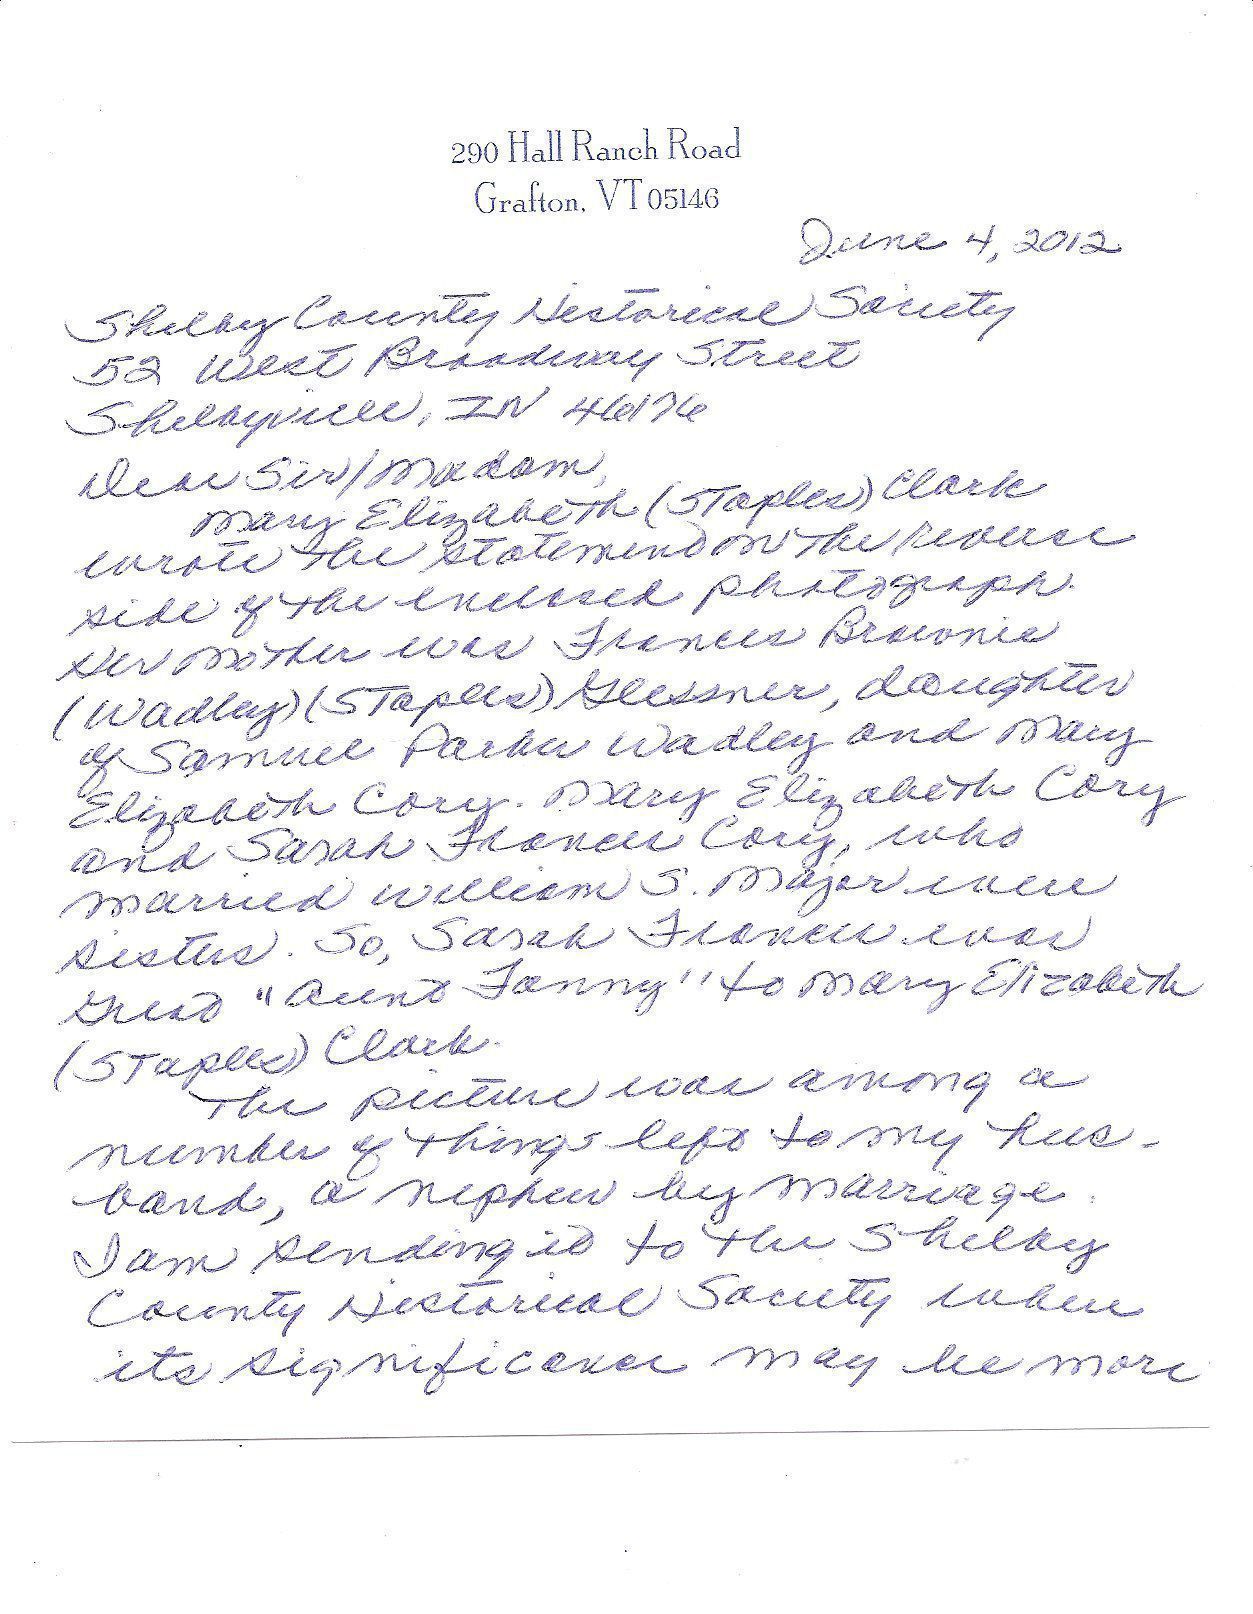 290 Hall Ranch Road
Grafton, VT 05146
June 4, 2012
Shelby County Historical Society
52 West Broadway Street
Shelbyville, IN 46176
Dear Sir/Madam,
Mary Elizabeth (Staples) Clark
wrote the statement on the reverse
side of the enclosed photograph.
Her mother was Frances Brownie
(Wadley) (Staples) Glessner, daughter
of Samuel Parker Wadley and Mary
Elizabeth Cory. Mary Elizabeth Cory
and Sarah Frances Cory, who
married William S. Major were
sisters. So, Sarah Frances was
Great "Aunt Fanny" to Mary Elizabeth
(Staples) Clark.
The picture was among a
number of things left to my hus-
band, a nephew by marriage.
I am sending it to the Shelby
County Historical Society where
its significance may be more